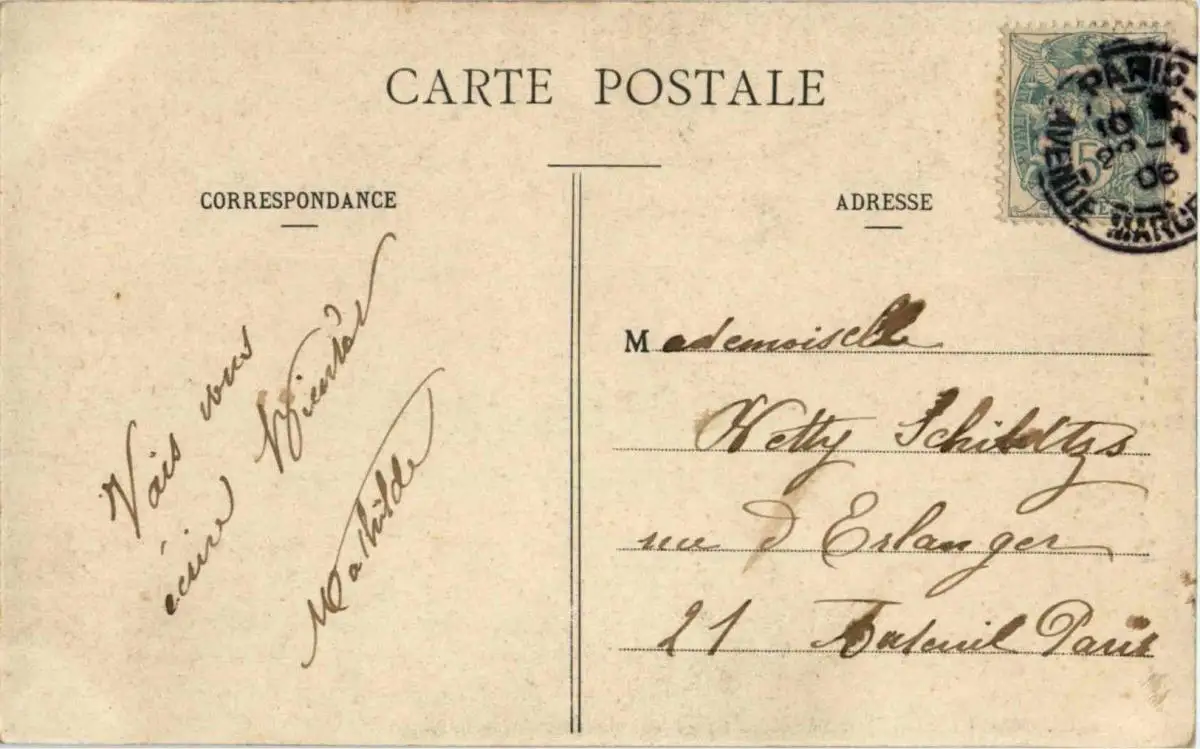 CARTE POSTALE
CORRESPONDANCE
ADRESSE
Vais vous
écrire Bientôt
Mathilde
Mademoiselle
Hetty
rue d'Erlanger
21 Auteuil Paris
PARIS
10
5
06
AVENUE